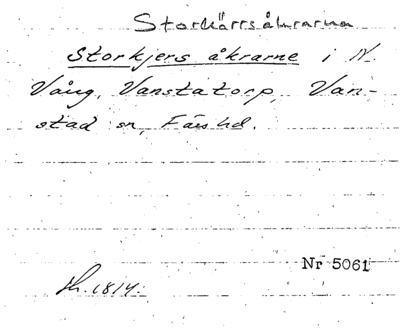 Storkärrsåkrarna
Storkjers åkrarne i N.
Vång, Vanstatorp, Van-
stad sn, Färs hd.
Nr 5061
1814.